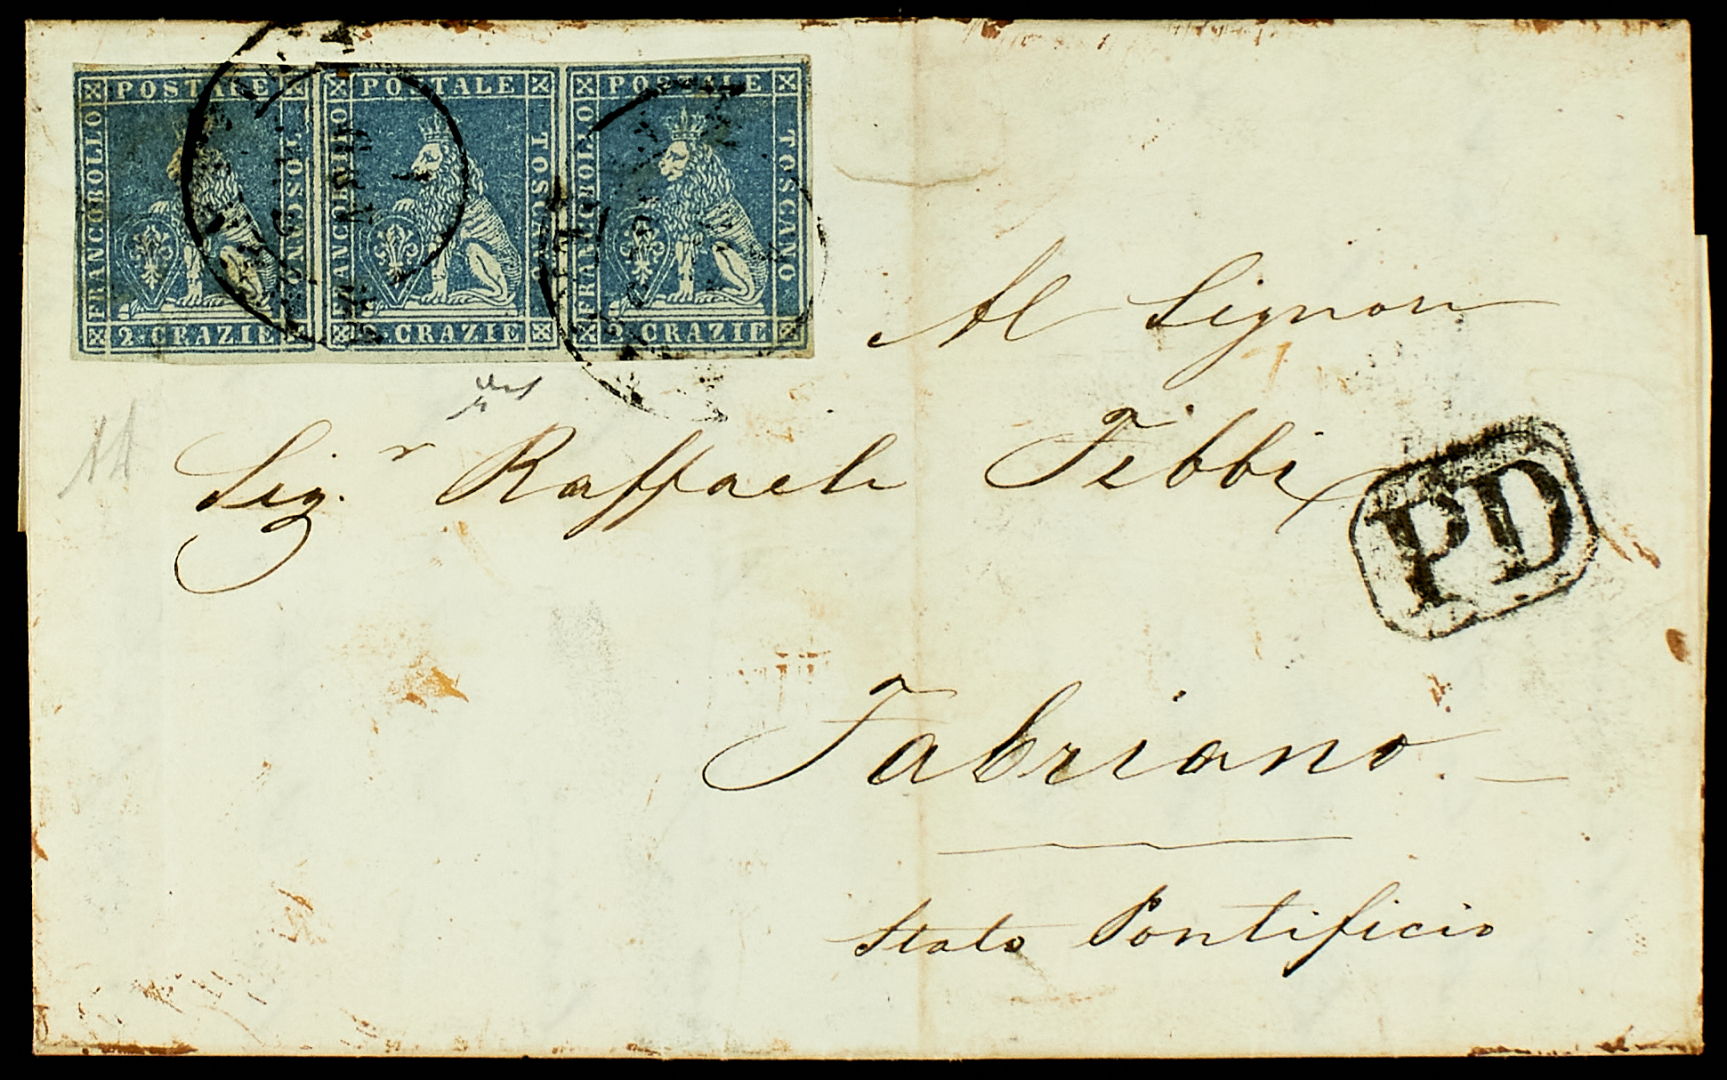 FRANCOBOLLO POSTALE TOSCANO 2 CRAZIE
FRANCOBOLLO POSTALE TOSCANO CRAZIE
FRANCOBOLLO POSTALE TOSCANO 2 CRAZIE
Al Signor
Sig.r Raffaele Febbi
PD
Fabriano
Stato Pontificio